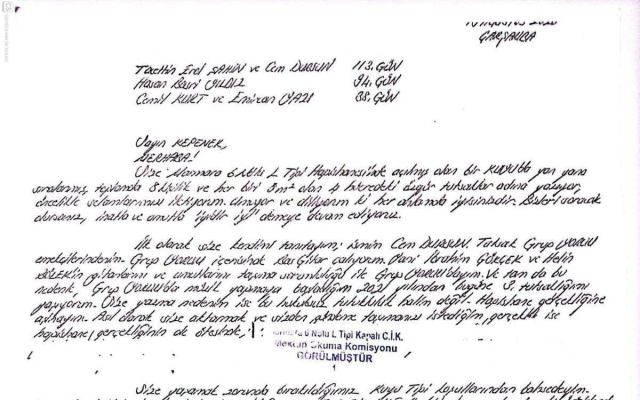 ÇARŞAMBA
Tacettin Erol ŞAHİN ve Cem DURSUN 113. GÜN
Hasan Basri YILDIZ 94. GÜN
Cemil KURT ve Emircan YAZI 88. GÜN
Sayın KEPENEK,
MERHABA!
Size Marmara 6 Nolu L Tipi Hapishanesi'nde açılmış olan bir KUYU'da yan yana
sıralanmış, toplamda 8 kişilik ve her biri 8m² olan 4 hücredeki özgür tutsaklar adına yazıyor,
öncelikle selamlarımızı iletiyorum. Umuyor ve diliyorum ki her anlamda iyisinizdir. Bizleri soracak
olursanız, inatla ve umutla "iyidir iyi" demeye devam ediyoruz.
İlk olarak size kendimi tanıtayım; ismim Cem DURSUN. Tutsak Grup YORUM
emekçilerindenim. Grup YORUM içerisinde bas gitar çalıyorum. Yani İbrahim GÖKÇEK ve Helin
BÖLEK'in gitarlarını ve umutlarını taşıma sorumluluğu ile Grup YORUM'dayım. Ve tam da bu
nedenle, Grup YORUM'da müzik yapmaya başladığım 2021 yılından bugüne 3. tutsaklığımı
yaşıyorum. Size yazma nedenim ise bu hukuksuz tutukluluk halim değil. Hapishane gerçekliğine
aşinayım. Asıl olarak size aktarmak ve sizden gündeme taşımanızı istediğim gerçeklik ise
hapishane gerçekliğinin de ötesinde;
6 Nolu L Tipi Kapalı C.İ.K.
Mektup Okuma Komisyonu
GÖRÜLMÜŞTÜR
1
Size yaşamak zorunda bırakıldığımız Kuyu Tipi koşullarından bahsedeyim.